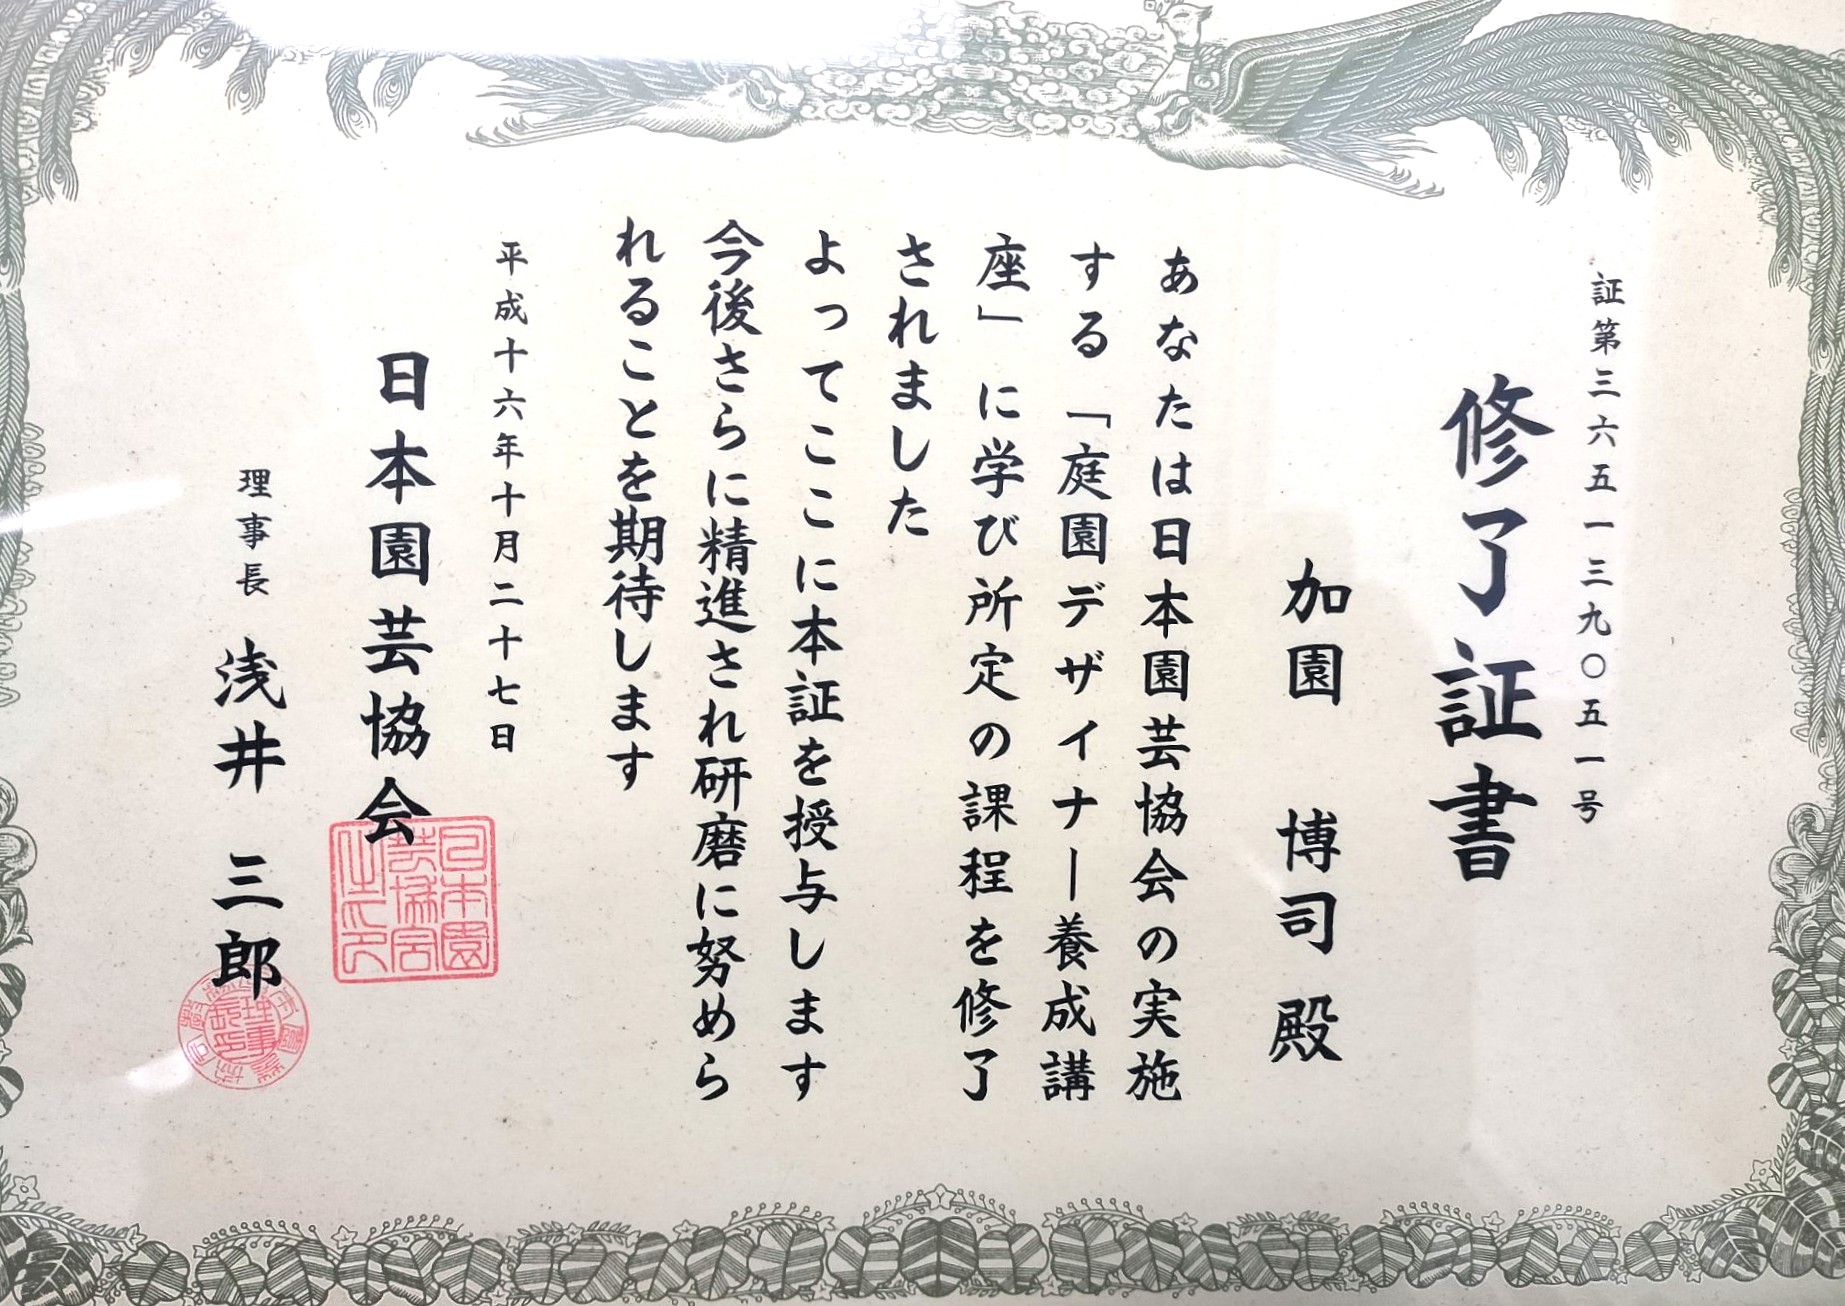 証第三六五一三九〇五一号
修了証書
加園 博司 殿
あなたは日本園芸協会の実施
する「庭園デザイナー養成講
座」に学び所定の課程を修了
されました
よってここに本証を授与します
今後さらに精進され研磨に努めら
れることを期待します
平成十六年十月二十七日
日本園芸協会
理事長 浅井 三郎
日本園
芸協会
之印